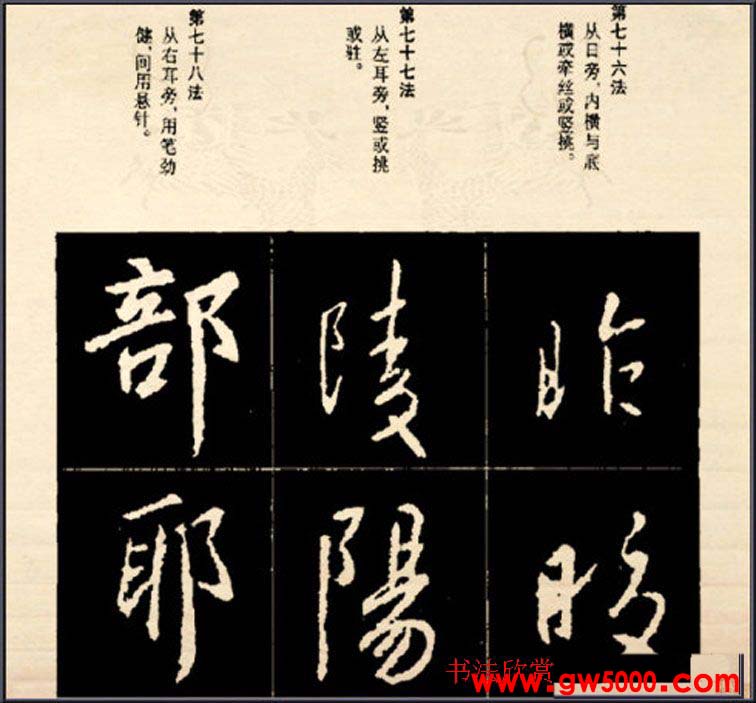 第七十六法
从日旁,内横与底
横或牵丝或竖挑。
第七十七法
从左耳旁,竖或挑
或驻。
第七十八法
从右耳旁,用笔劲
健,间用悬针。
昨
陵
陽
部
耶
书法欣赏
www.gw5000.com